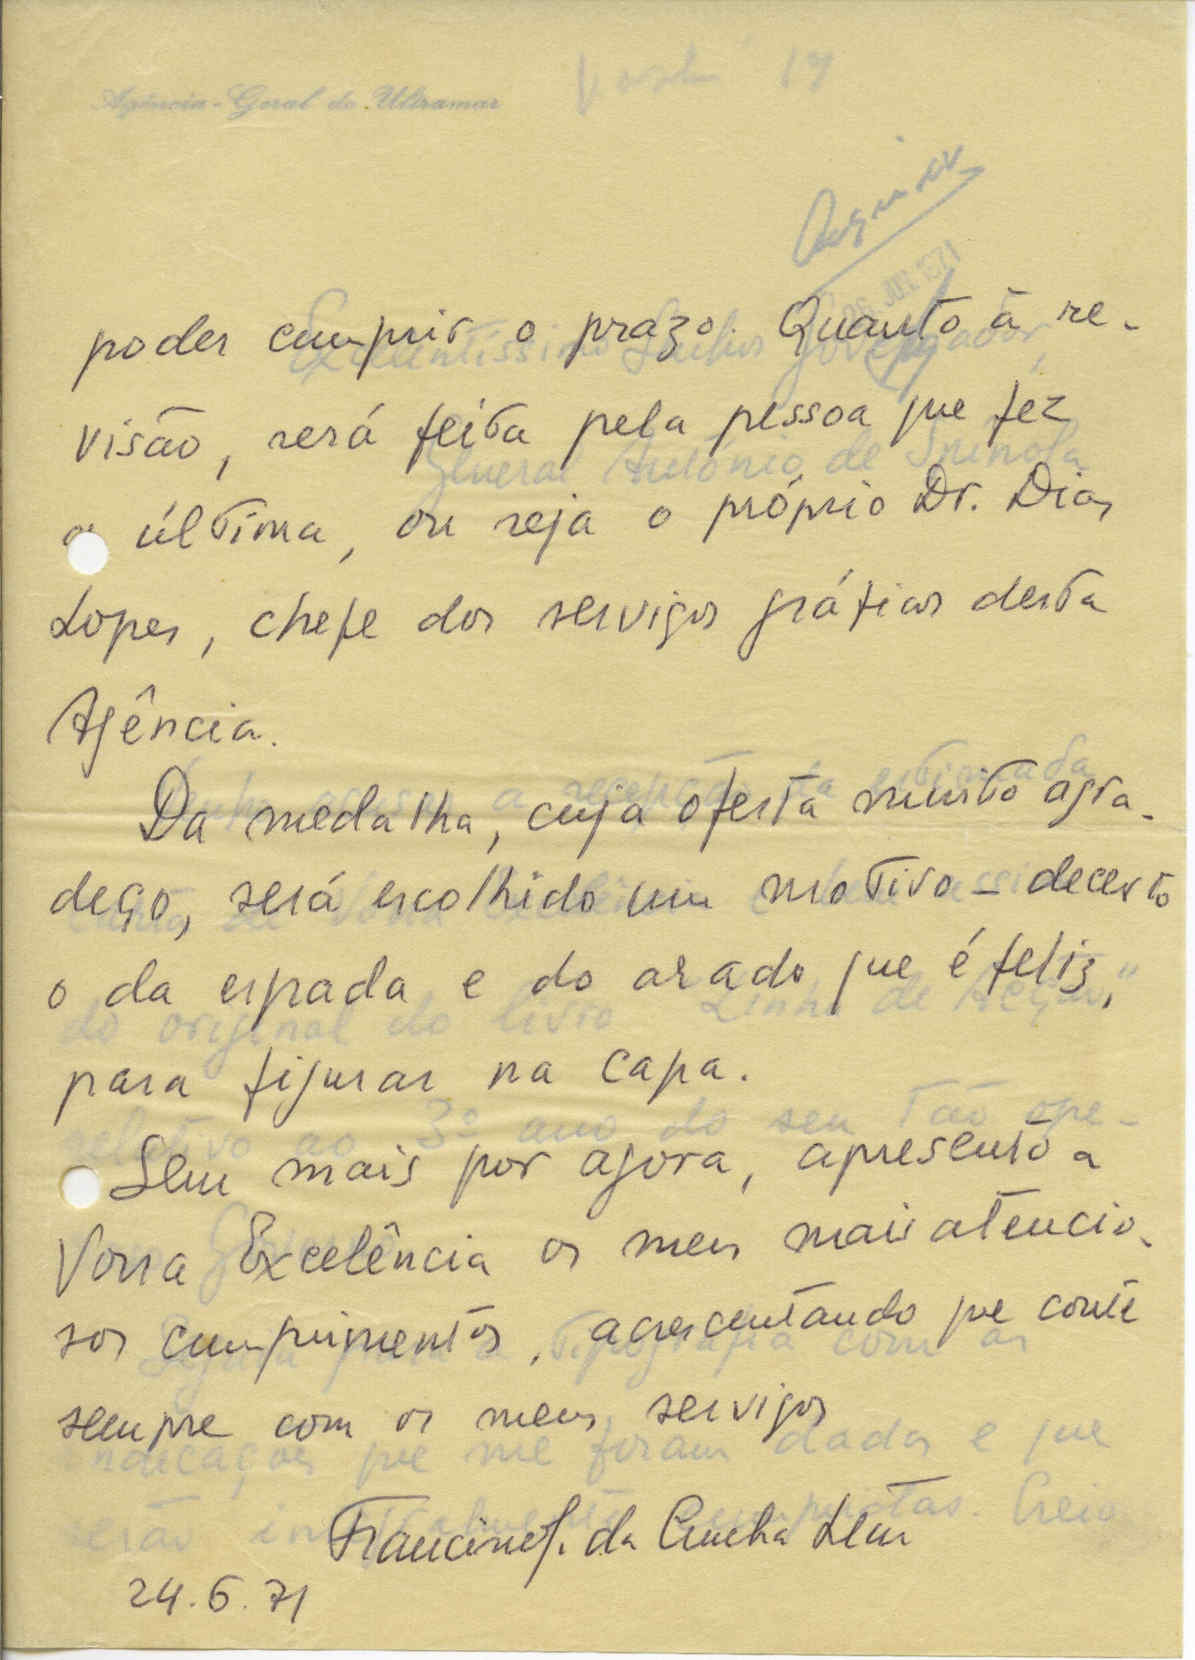 Agência-Geral do Ultramar
poder cumprir o prazo. Quanto à re-
visão, será feita pela pessoa que fez
a última, ou seja o próprio Dr. Dias
Lopes, chefe dos serviços gráficos desta
Agência.
Da medalha, cuja oferta muito agra-
deço, será escolhido um motivo - decerto
o da espada e do arado que é feliz,
para figurar na capa.
Sem mais por agora, apresento a
Vossa Excelência os meus mais atencio-
sos cumprimentos, acrescentando que conte
sempre com os meus serviços
da Cunha Leão
24.6.71